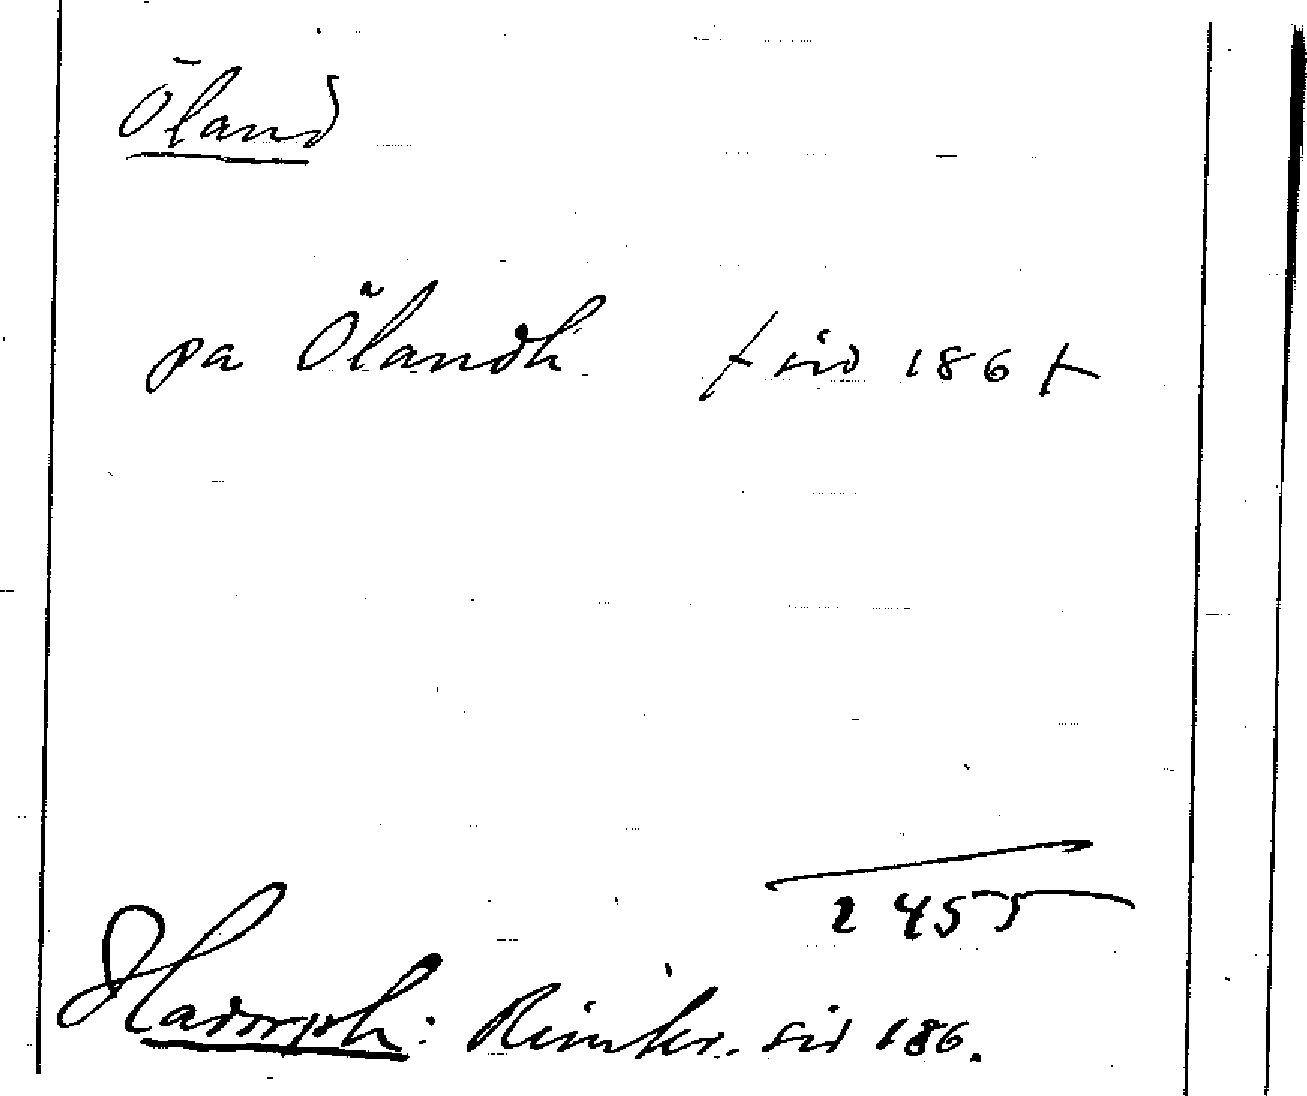 Öland
pa Ölandh. / sid 186 /
2455
Hadorph: Rimkr. sid 186.